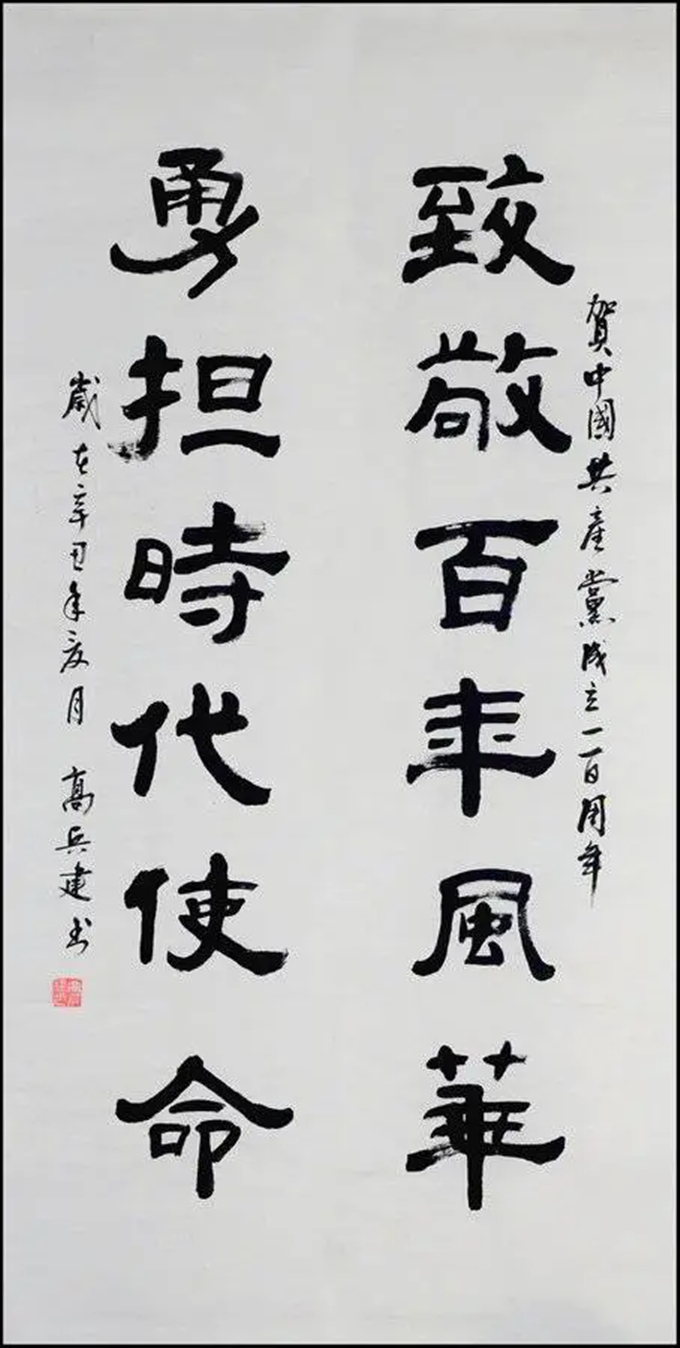 賀中國共產黨成立一百周年
致敬百年風華
勇担時代使命
歲在辛丑年夏月 高兵建书